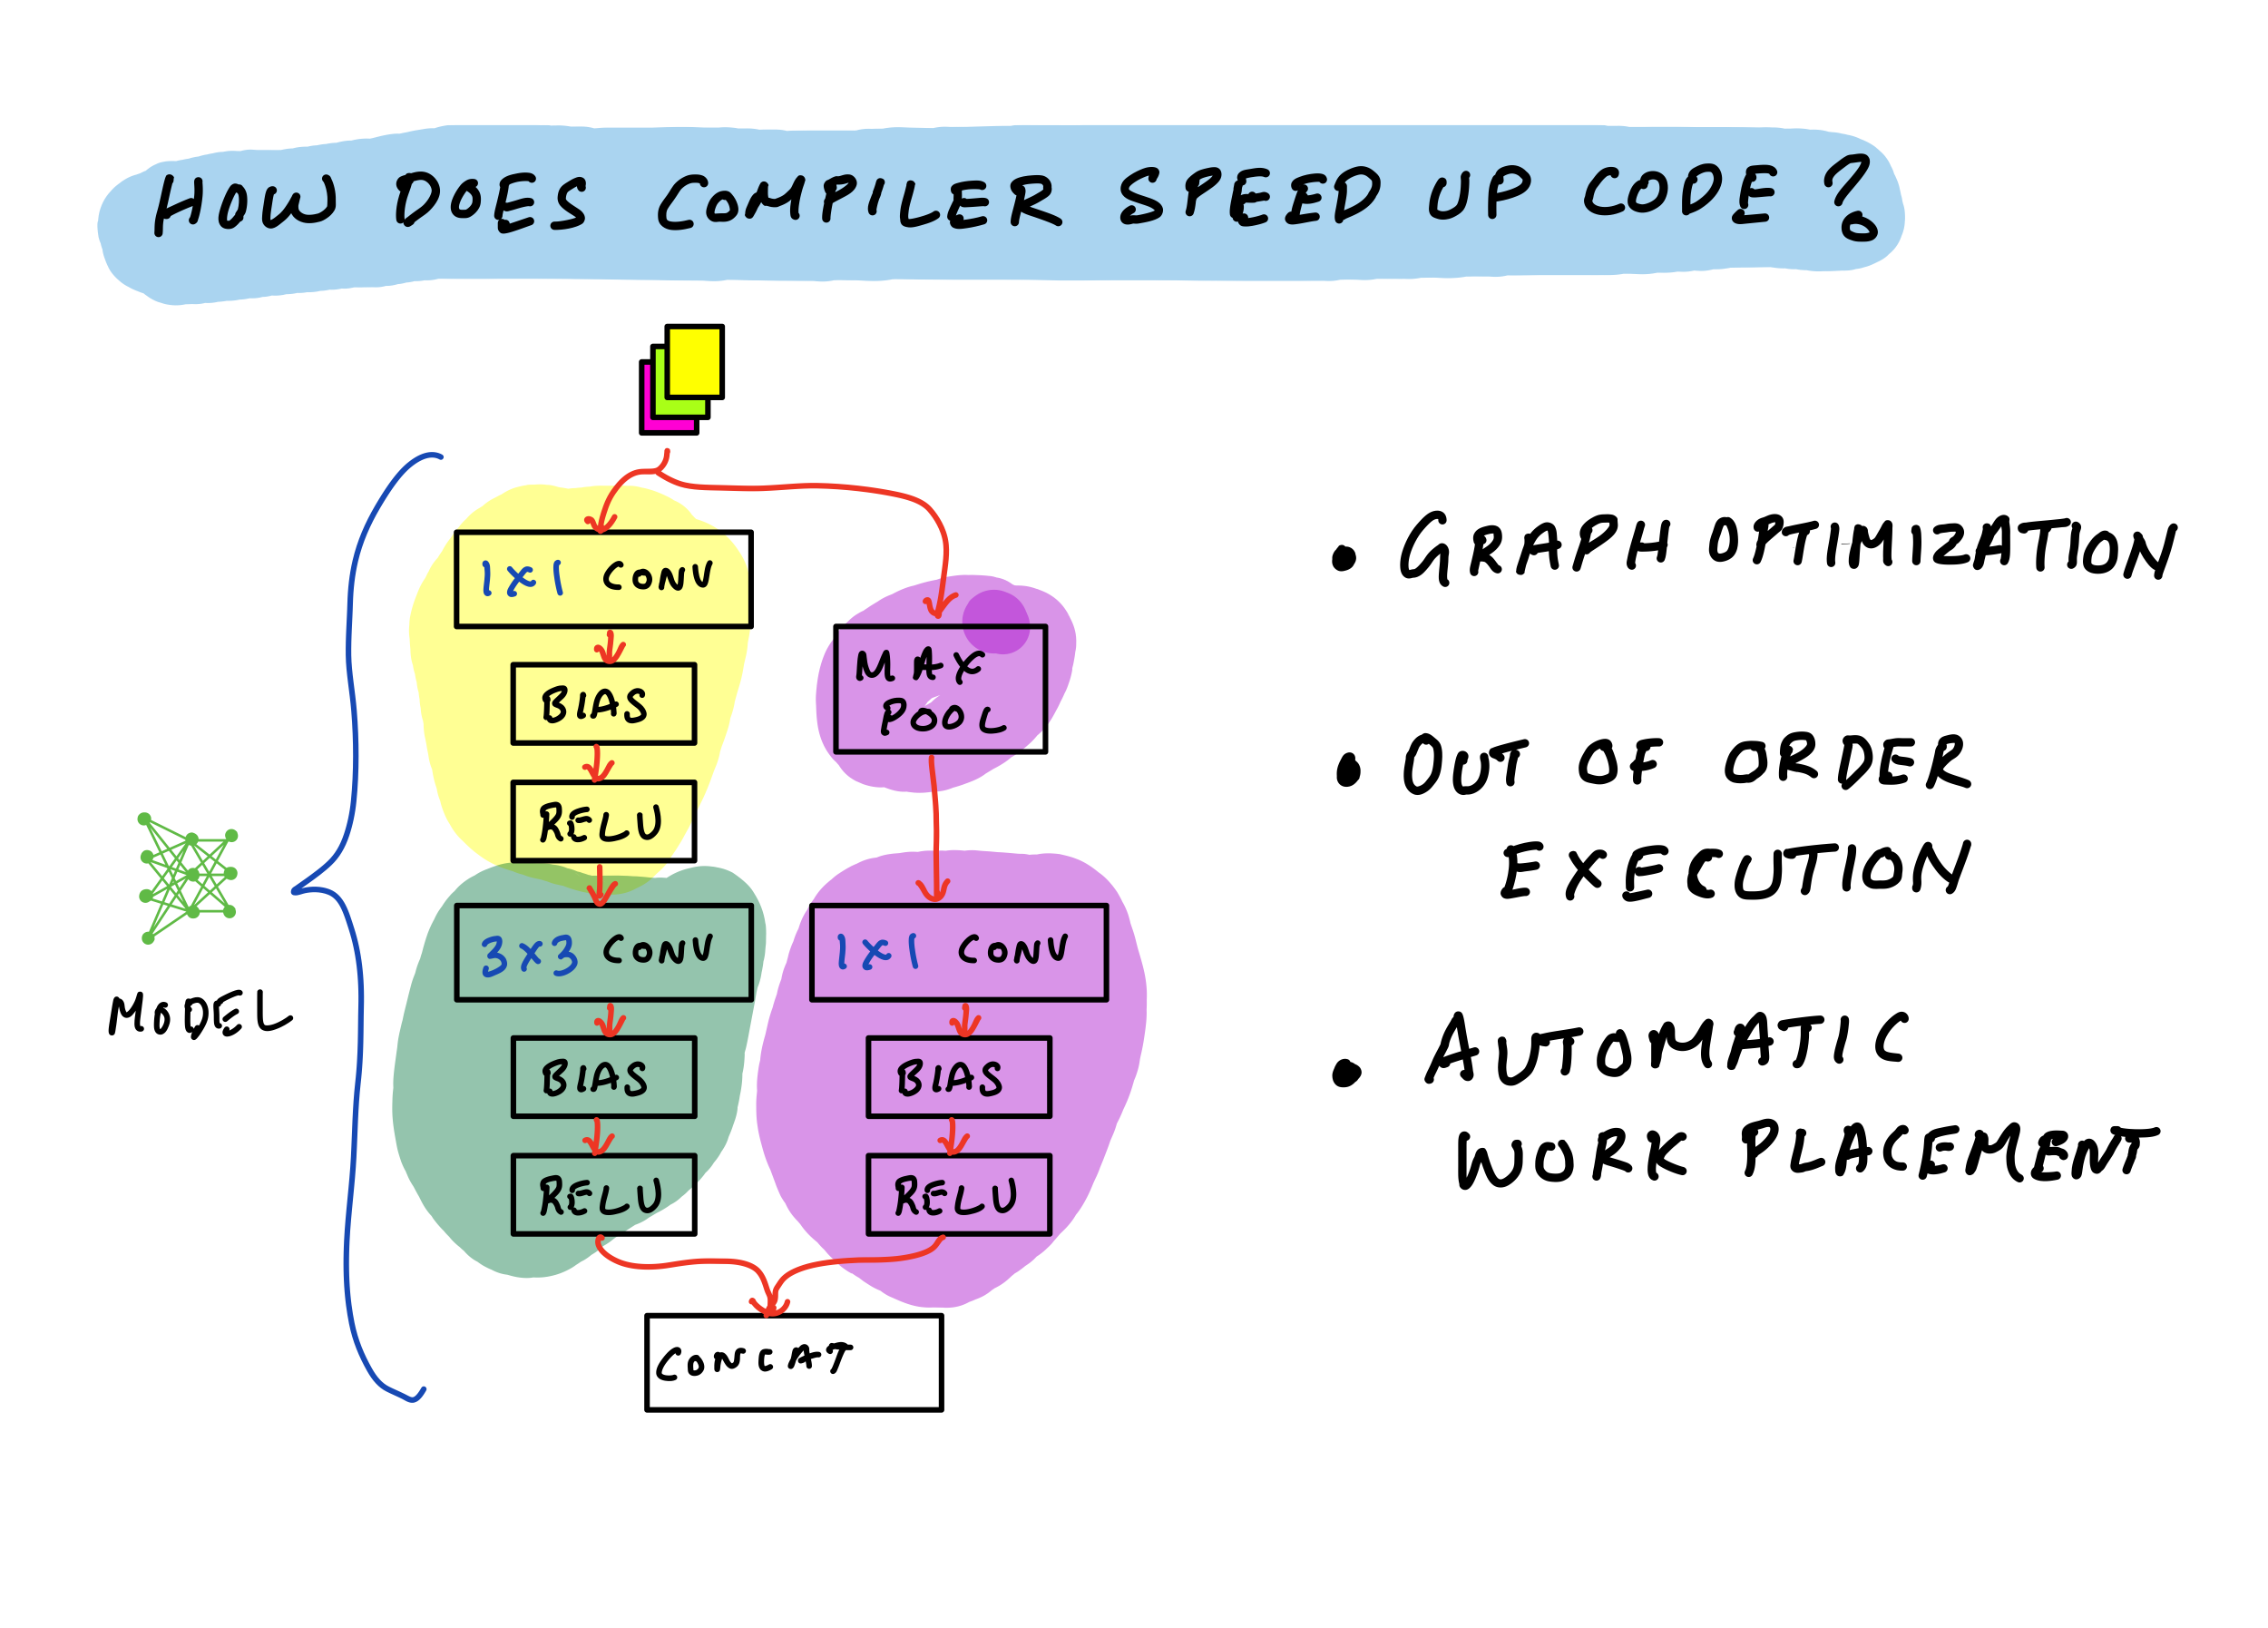 HOW DOES COMPILER SPEED UP CODE?
1x1 CONV
BIAS
RELU
MAX
POOL
3x3 CONV
BIAS
RELU
1x1 CONV
BIAS
RELU
CONCAT
MODEL
• GRAPH OPTIMIZATION
• OUT OF ORDER
EXECUTION
• AUTOMATIC
WORK PLACEMENT